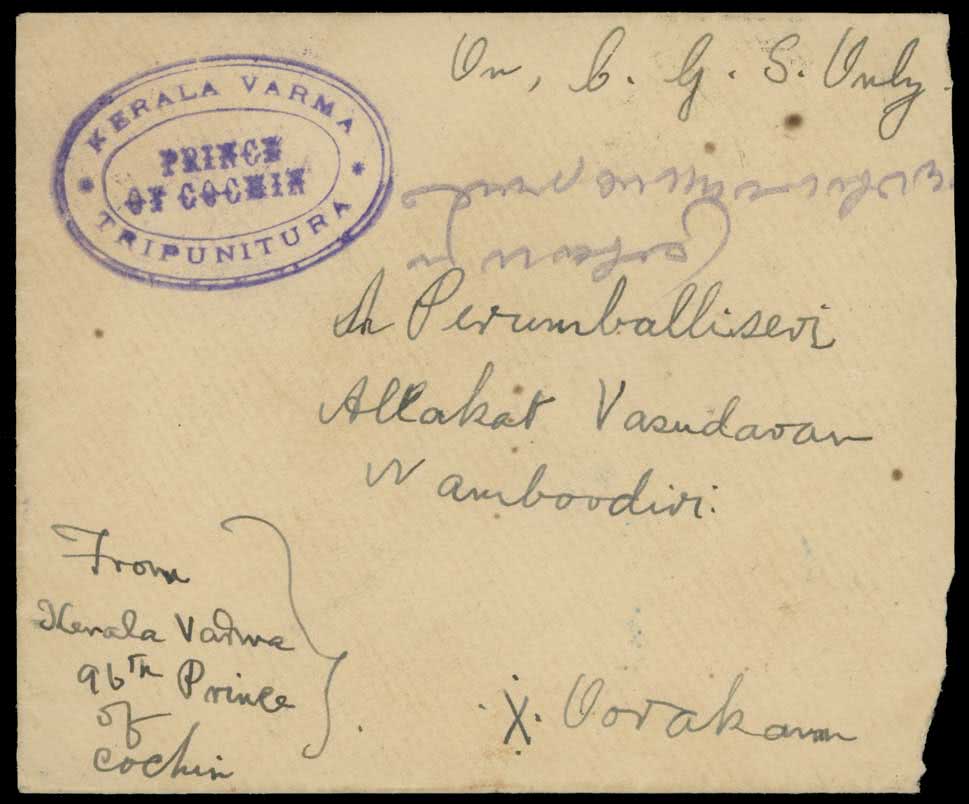 On, C. G. S. Only.
KERALA VARMA
PRINCE
OF COCHIN
TRIPUNITURA
To Perumballiseri
Allakat Vasudavan
Namboodiri.
From
Kerala Varma
96th Prince
of
Cochin
X. Oorakam